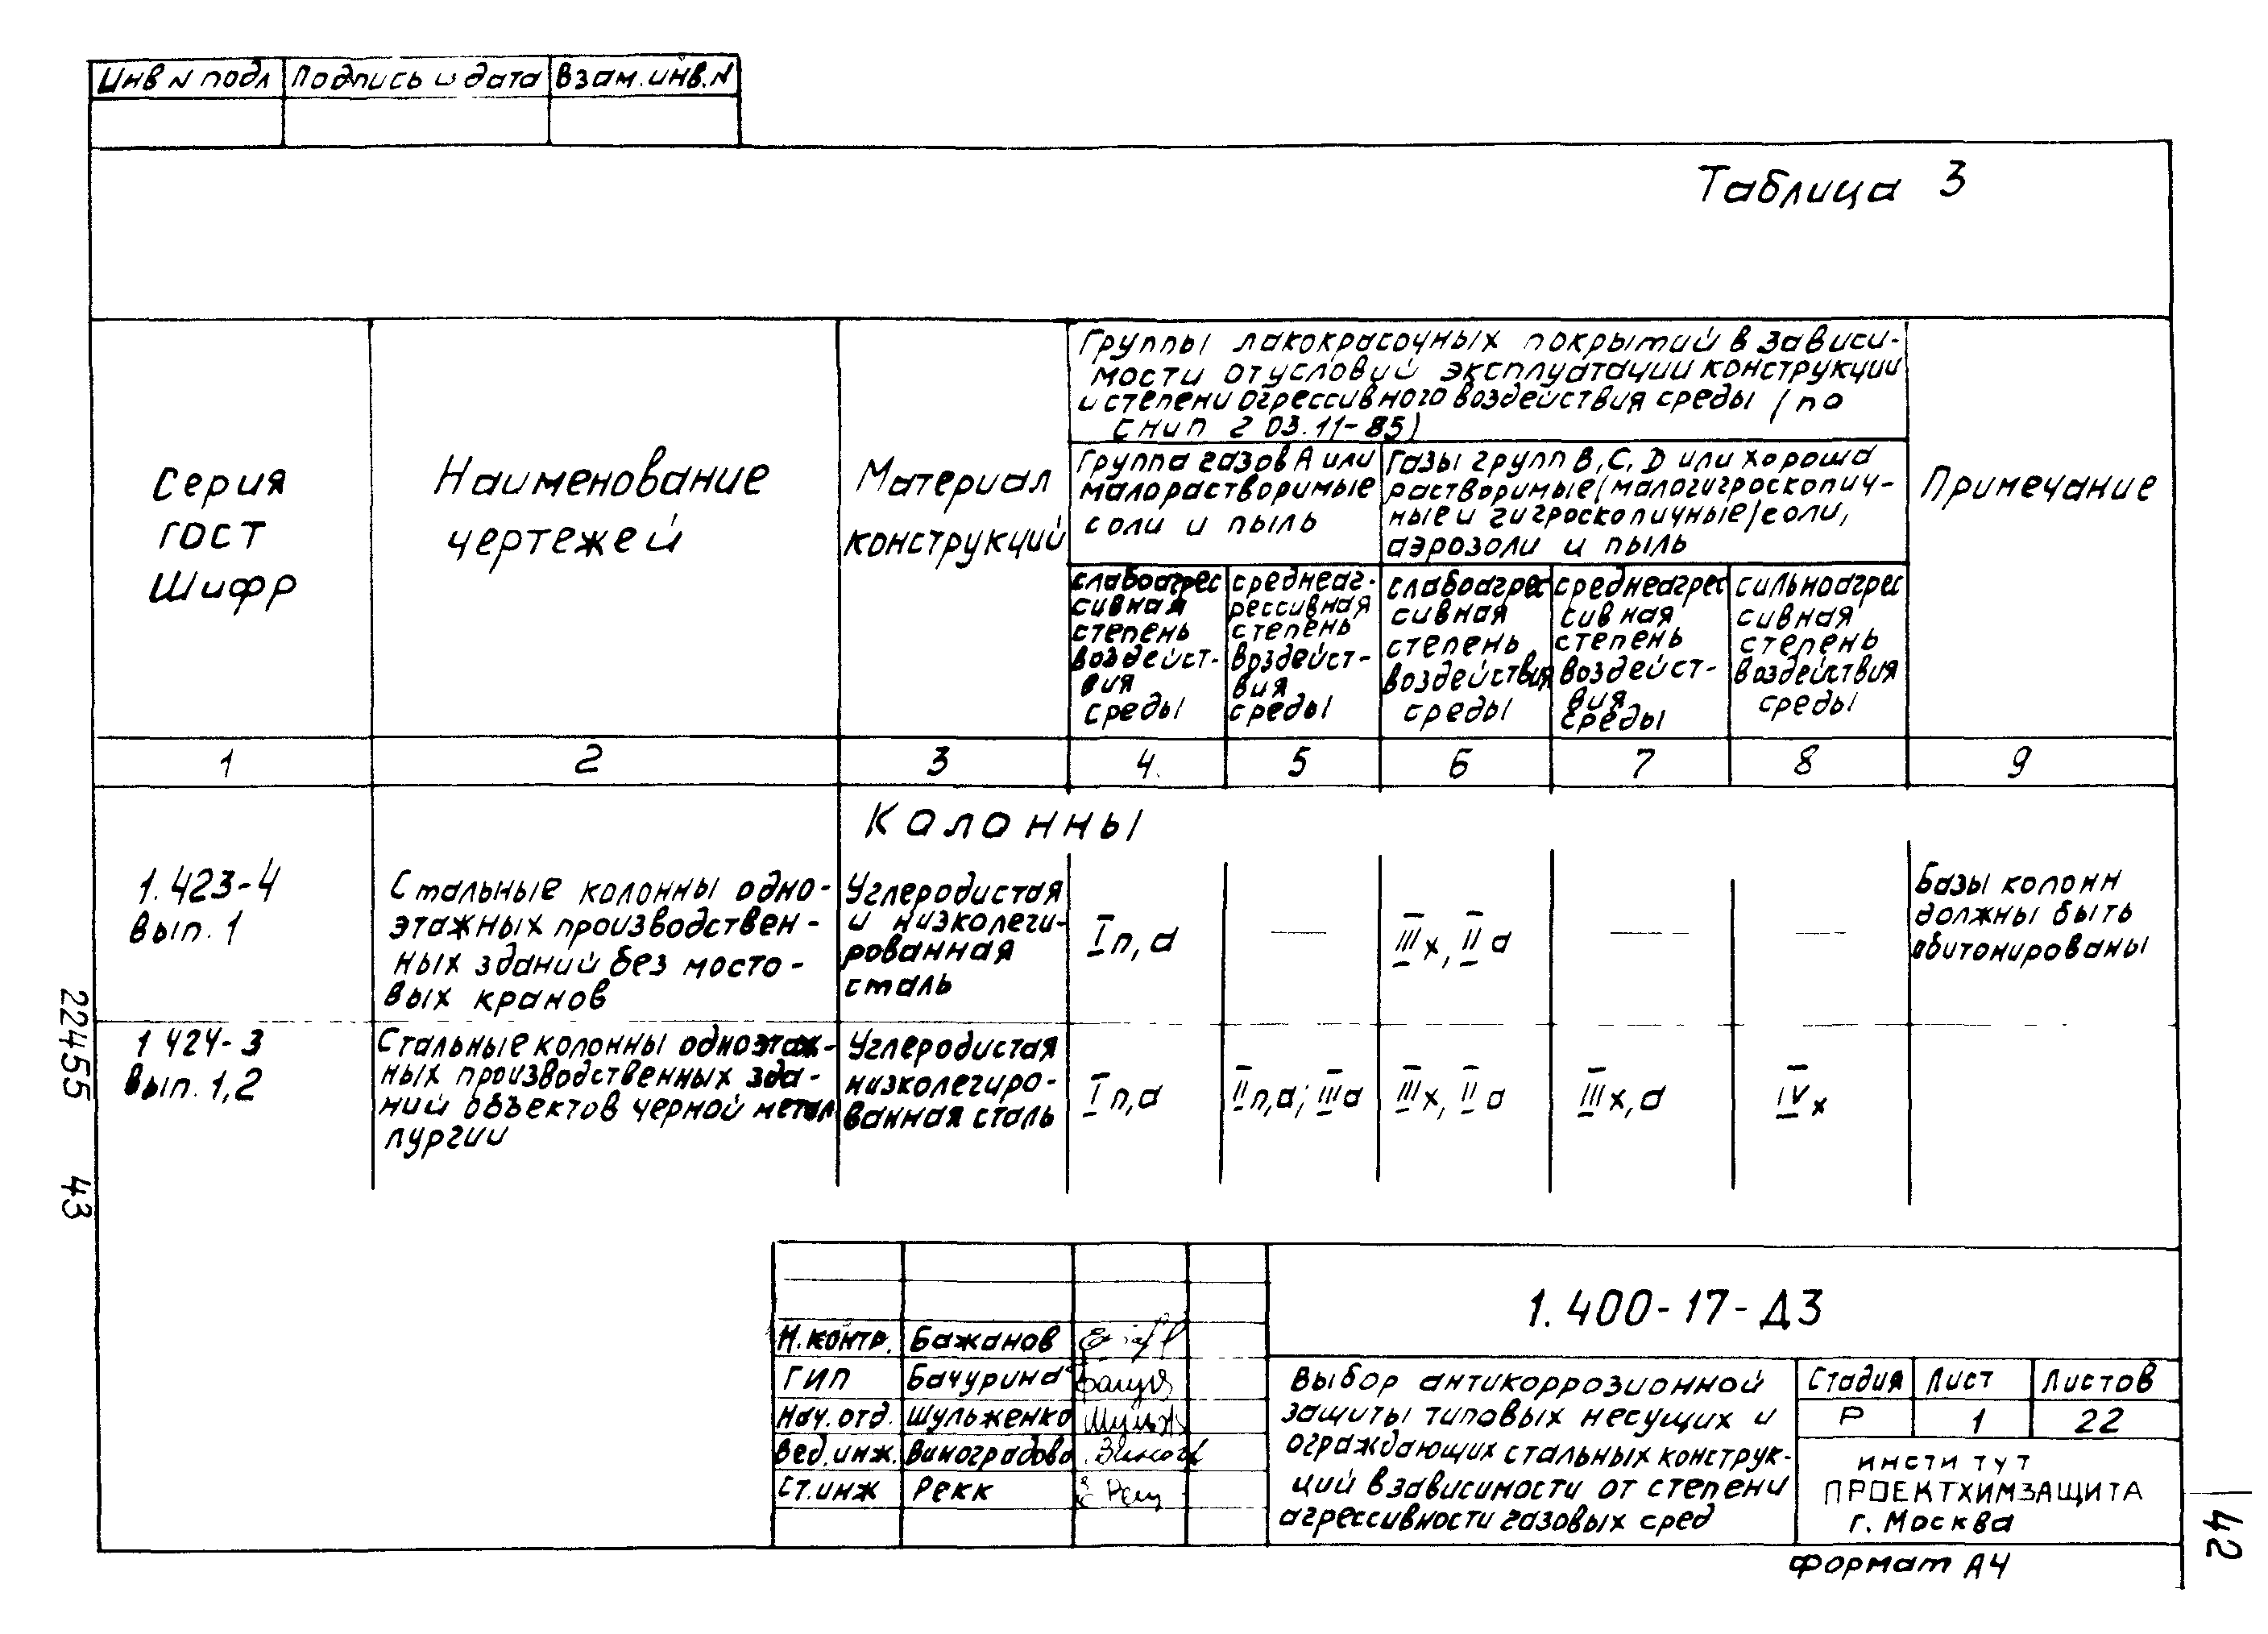 Инв N подл Подпись и дата Взам. инв. N
Таблица 3
Серия
ГОСТ
Шифр
Наименование
чертежей
Материал
конструкций
Группы лакокрасочных покрытий в зависи-
мости от условий эксплуатации конструкции
и степени огрессивного воздействия среды (по
СНиП 2 03.11-85)
Группа газов А или
малорастворимые
соли и пыль
Газы групп В, С, D или хорошо
растворимые (малогигроскопич-
ные и гигроскопичные) соли,
аэрозоли и пыль
слабоагрес
сивная
степень
воздейст-
вия
среды
среднеаг-
рессивная
степень
воздейст-
вия
среды
слабоагрес
сивная
степень
воздействия
среды
среднеагрес
сивная
степень
воздейст-
вия
среды
сильноагрес
сивная
степень
воздействия
среды
Примечание
1 2 3 4. 5 6 7 8 9
Колонны
1.423-4
Вып. 1
Стальные колонны одно-
этажных производствен-
ных зданий без мосто-
вых кранов
Углеродистая
и низколеги-
рованная
сталь
I п, а — III х, II а — —
Базы колонн
должны быть
обитонированы
1 424-3
Вып. 1,2
Стальные колонны одноэтаж-
ных производственных зда-
ний объектов черной метал
лургии
Углеродистая
низколегиро-
ванная сталь
I п, а II п, а; III а III х, II а III х, а IV х
22455 43
1.400-17-Д3
Н. контр. Бажанов
ГИП Бачурина
Нач. отд. Шульженко
Вед. инж. Виноградова
Ст. инж Рекк
Выбор антикоррозионной
защиты типовых несущих и
ограждающих стальных конструк-
ций в зависимости от степени
агрессивности газовых сред
Стадия Лист Листов
Р 1 22
ИНСТИТУТ
ПРОЕКТХИМЗАЩИТА
г. Москва
Формат А4
42